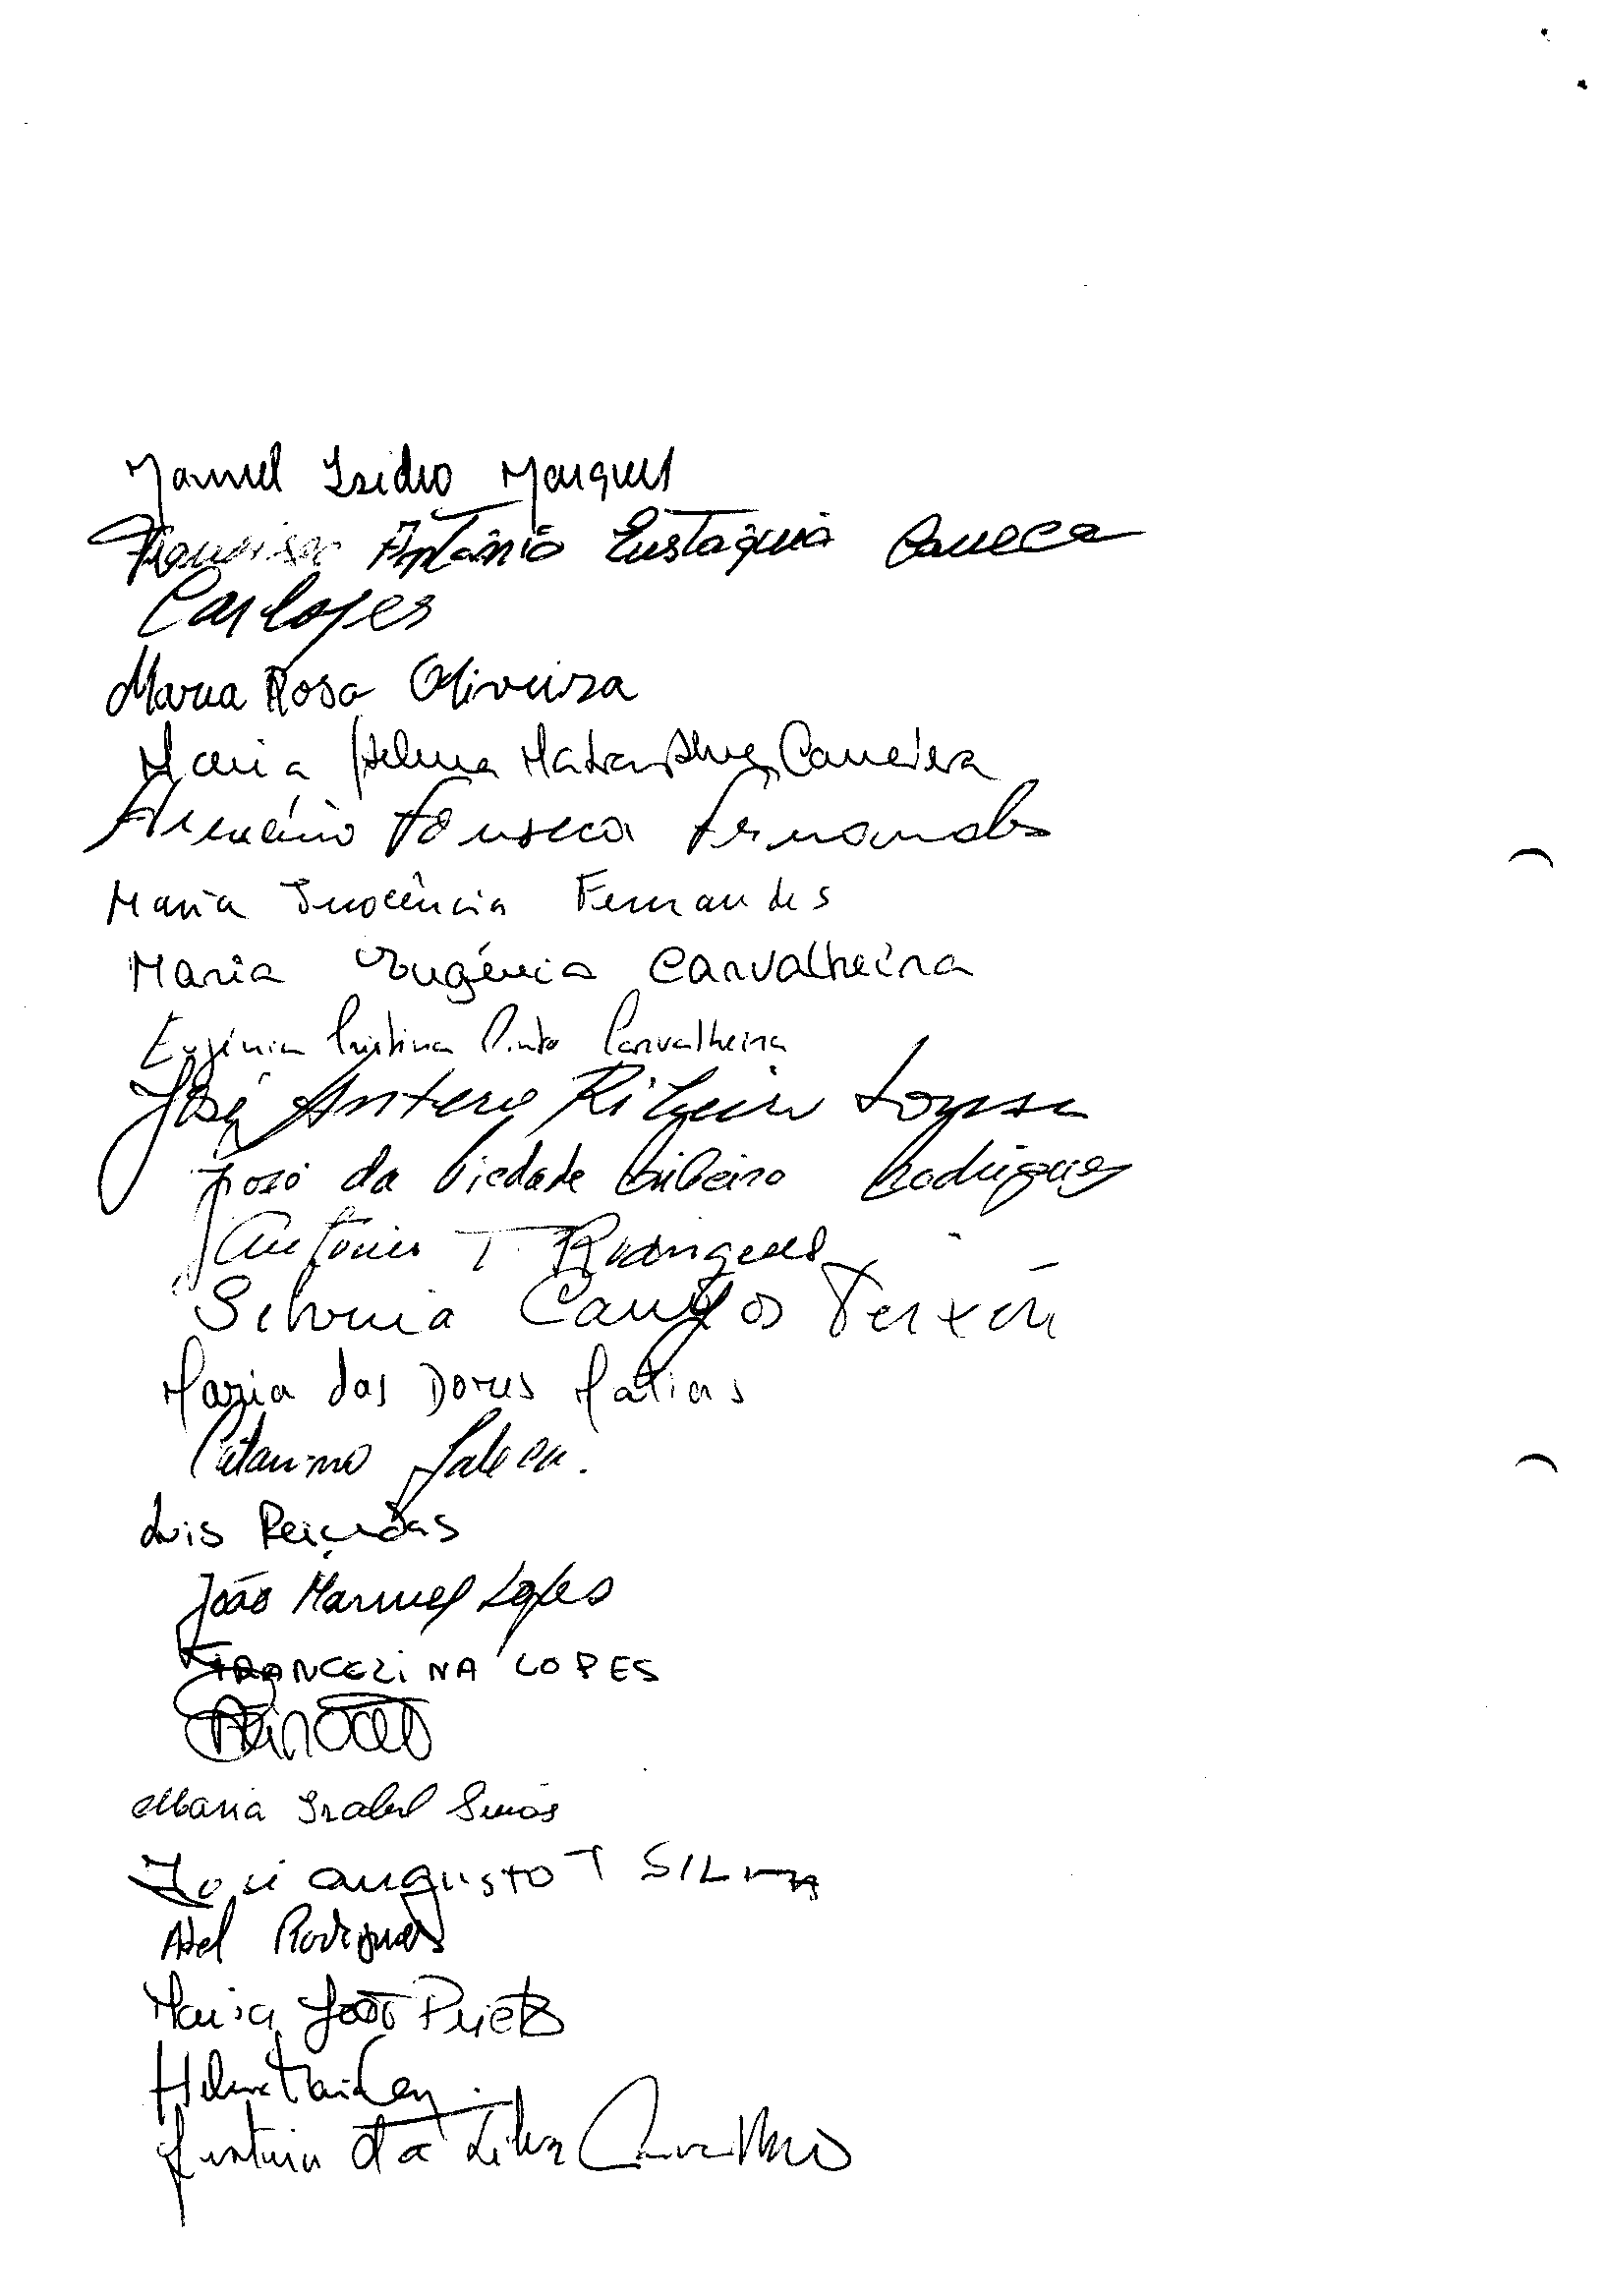 Manuel Isidro Marques
Francisco António Eustáquio Caneca
Carlopes
Maria Rosa Oliveira
Maria Helena Carreira
Fonseca Fernandes
Maria Inocência Fernandes
Maria Eugénia Carvalheira
Eugénia Cristina Pinto Carvalheira
José Antero Ribeiro
José da Piedade Ribeiro Rodrigues
António T. Rodrigues
Silvina Campos
Maria das Dores Matias
Catarina
Luis
João Manuel Lopes
FRANCELINA LOPES
Maria Isabel Simões
José augusto T SILVA
Abel Rodrigues
Maria João Prieto
Helena
da Silva Carvalho